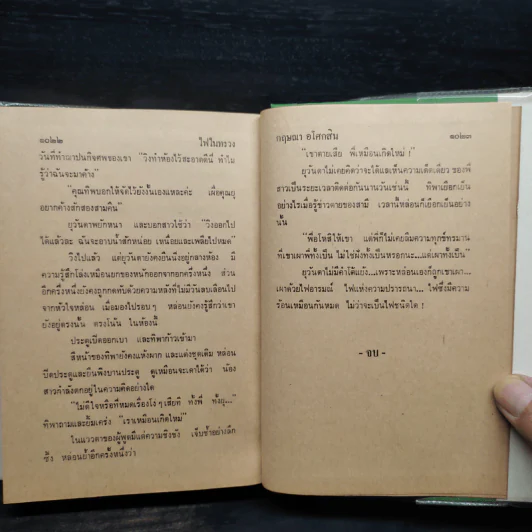 ๑๐๒๒ ไฟในทรวง
วันที่ทำฌาปนกิจศพของเขา "วิงทำห้องไว้สะอาดดีนี่ พี่ไม่
รู้ว่าฉันจะมาค้าง"
"คุณทิพบอกให้จัดไว้ยังงั้นเองแหละค่ะ เผื่อคุณยุ
อยากค้างสักสองสามคืน"
ยุวันดาพยักหน้า และบอกสาวใช้ว่า "วิงออกไป
ได้แล้วละ ฉันจะอาบน้ำสักหน่อย เหนื่อยและเพลียไปหมด"
วิงไปแล้ว แต่ยุวันดายังคงยืนนิ่งอยู่กลางห้อง มี
ความรู้สึกโล่งเหมือนยกของหนักออกจากอกครึ่งหนึ่ง ส่วน
อีกครึ่งหนึ่งยังคงถูกกดทับด้วยความหลังที่ไม่มีวันลบเลือนไป
จากหัวใจหล่อน เมื่อมองไปรอบๆ หล่อนยังคงรู้สึกว่าเขา
ยังอยู่ตรงนั้น ตรงโน้น ในห้องนี้
ประตูเปิดออกเบา และทิพาก้าวเข้ามา
สีหน้าของทิพายังคงแห้งผาก และแต่งชุดเดิม หล่อน
ปิดประตูและยืนพิงบานประตู ดูเหมือนจะเดาได้ว่า น้อง
สาวกำลังตกอยู่ในความคิดอย่างใด
"ไม่ดีใจหรือที่หมดเรื่องโง่ๆ เสียที ทั้งพี่ ทั้งยุ..."
ทิพาถามและยิ้มเคร่ง "เราเหมือนเกิดใหม่"
ในแววตาของผู้พูดมีแต่ความชิงชัง เจ็บช้ำอย่างลึก
ซึ้ง หล่อนย้ำอีกครั้งหนึ่งว่า
กฤษณา อโศกสิน ๑๐๒๓
"เขาตายเสีย พี่เหมือนเกิดใหม่ !
ยุวันดาไม่เคยคิดว่าจะได้แลเห็นความเด็ดเดี่ยว ของพี่
สาวเป็นระยะเวลาติดต่อกันนานวันเช่นนี้ ทิพาเยือกเย็น
อย่างไรเมื่อรู้ข่าวตายของสามี เวลานี้หล่อนก็เยือกเย็นอย่าง
นั้น
"พี่อโหสิให้เขา แต่พี่ก็ไม่เคยลืมความทุกข์ทรมาน
ที่เขาเผาพี่ทั้งเป็น ไม่ใช่ฝังทั้งเป็นหรอกนะ...แต่เผาทั้งเป็น"
ยุวันดาไม่มีคำโต้แย้ง...เพราะหล่อนเองก็ถูกเขาเผา...
เผาด้วยไฟอารมณ์ ไฟแห่งความปรารถนา... ไฟซึ่งมีความ
ร้อนเหมือนกันหมด ไม่ว่าจะเป็นไฟชนิดใด !
- จบ -